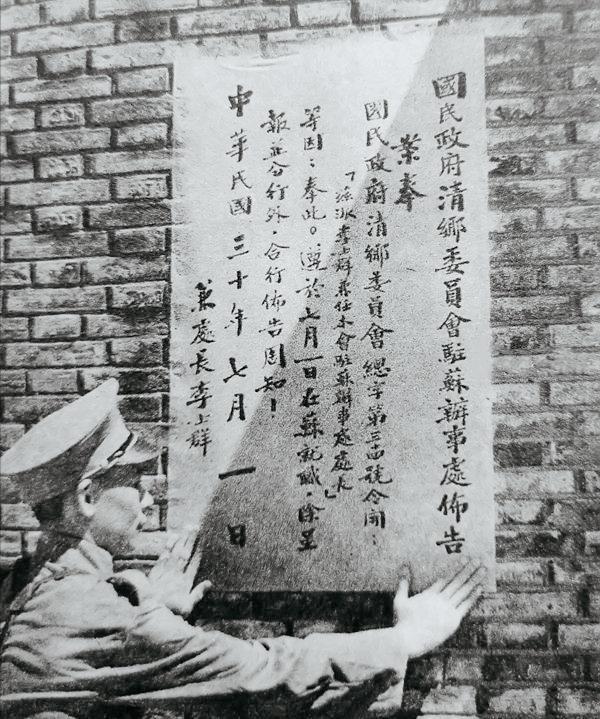 國民政府清鄉委員會駐蘇辦事處佈告
業奉
國民政府清鄉委員會總字第三四號令開：
「茲派李士群兼任本會駐蘇辦事處處長」
等因；奉此。遵於七月一日在蘇就職，除呈
報並分行外，合行佈告周知！
中華民國三十年七月一日
兼處長李士群